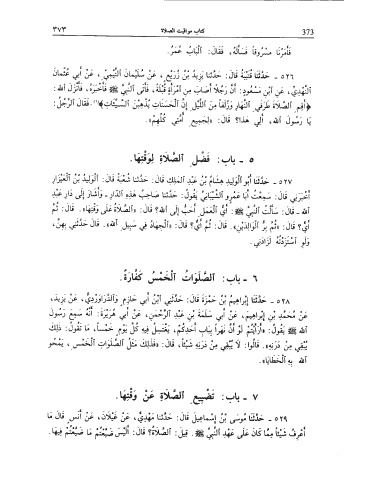 373 كتاب مواقيت الصلاة ٣٧٣
فَأَمَرْنَا مَسْرُوقاً فَسَأَلَهُ، فَقَالَ: ٱلْبَابُ عُمَرُ.
٥٢٦ - حَدَّثَنَا قُتَيْبَةُ قَالَ: حَدَّثَنَا يَزِيدُ بْنُ زُرَيْعٍ، عَنْ سُلَيْمَانَ ٱلتَّيْمِيِّ، عَنْ أَبِي عُثْمَانَ
ٱلنَّهْدِيِّ، عَنِ ٱبْنِ مَسْعُودٍ: أَنَّ رَجُلاً أَصَابَ مِنَ ٱمْرَأَةٍ قُبْلَةً، فَأَتَى ٱلنَّبِيَّ ﷺ فَأَخْبَرَهُ، فَأَنْزَلَ ٱللهُ:
﴿أَقِمِ ٱلصَّلاَةَ طَرَفَيِ ٱلنَّهَارِ وَزُلَفاً مِنَ ٱللَّيْلِ إِنَّ ٱلْحَسَنَاتِ يُذْهِبْنَ ٱلسَّيِّئَاتِ﴾، فَقَالَ ٱلرَّجُلُ:
يَا رَسُولَ ٱللهِ، أَلِي هَذَا؟ قَالَ: «لِجَمِيعِ أُمَّتِي كُلِّهِمْ».
٥ - باب: فَضْلِ ٱلصَّلاَةِ لِوَقْتِهَا.
٥٢٧ - حَدَّثَنَا أَبُو ٱلْوَلِيدِ هِشَامُ بْنُ عَبْدِ ٱلْمَلِكِ قَالَ: حَدَّثَنَا شُعْبَةُ قَالَ: ٱلْوَلِيدُ بْنُ ٱلْعَيْزَارِ
أَخْبَرَنِي قَالَ: سَمِعْتُ أَبَا عَمْرٍو ٱلشَّيْبَانِيَّ يَقُولُ: حَدَّثَنَا صَاحِبُ هَذِهِ ٱلدَّارِ - وَأَشَارَ إِلَى دَارِ عَبْدِ
ٱللهِ - قَالَ: سَأَلْتُ ٱلنَّبِيَّ ﷺ: أَيُّ ٱلْعَمَلِ أَحَبُّ إِلَى ٱللهِ؟ قَالَ: «ٱلصَّلاَةُ عَلَى وَقْتِهَا». قَالَ: ثُمَّ
أَيُّ؟ قَالَ: «ثُمَّ بِرُّ ٱلْوَالِدَيْنِ». قَالَ: ثُمَّ أَيُّ؟ قَالَ: «ٱلْجِهَادُ فِي سَبِيلِ ٱللهِ». قَالَ: حَدَّثَنِي بِهِنَّ،
وَلَوِ ٱسْتَزَدْتُهُ لَزَادَنِي.
٦ - باب: ٱلصَّلَوَاتُ ٱلْخَمْسُ كَفَّارَةٌ.
٥٢٨ - حَدَّثَنَا إِبْرَاهِيمُ بْنُ حَمْزَةَ قَالَ: حَدَّثَنِي ٱبْنُ أَبِي حَازِمٍ وَٱلدَّرَاوَرْدِيُّ، عَنْ يَزِيدَ،
عَنْ مُحَمَّدِ بْنِ إِبْرَاهِيمَ، عَنْ أَبِي سَلَمَةَ بْنِ عَبْدِ ٱلرَّحْمٰنِ، عَنْ أَبِي هُرَيْرَةَ: أَنَّهُ سَمِعَ رَسُولَ
ٱللهِ ﷺ يَقُولُ: «أَرَأَيْتُمْ لَوْ أَنَّ نَهَراً بِبَابِ أَحَدِكُمْ، يَغْتَسِلُ فِيهِ كُلَّ يَوْمٍ خَمْساً، مَا تَقُولُ: ذَلِكَ
يُبْقِي مِنْ دَرَنِهِ». قَالُوا: لاَ يُبْقِي مِنْ دَرَنِهِ شَيْئاً، قَالَ: «فَذَلِكَ مَثَلُ ٱلصَّلَوَاتِ ٱلْخَمْسِ، يَمْحُو
ٱللهُ بِهِ ٱلْخَطَايَا».
٧ - باب: تَضْيِيعِ ٱلصَّلاَةِ عَنْ وَقْتِهَا.
٥٢٩ - حَدَّثَنَا مُوسَى بْنُ إِسْمَاعِيلَ قَالَ: حَدَّثَنَا مَهْدِيٌّ، عَنْ غَيْلاَنَ، عَنْ أَنَسٍ قَالَ مَا
أَعْرِفُ شَيْئاً مِمَّا كَانَ عَلَى عَهْدِ ٱلنَّبِيِّ ﷺ. قِيلَ: ٱلصَّلاَةُ؟ قَالَ: أَلَيْسَ ضَيَّعْتُمْ مَا ضَيَّعْتُمْ فِيهَا.